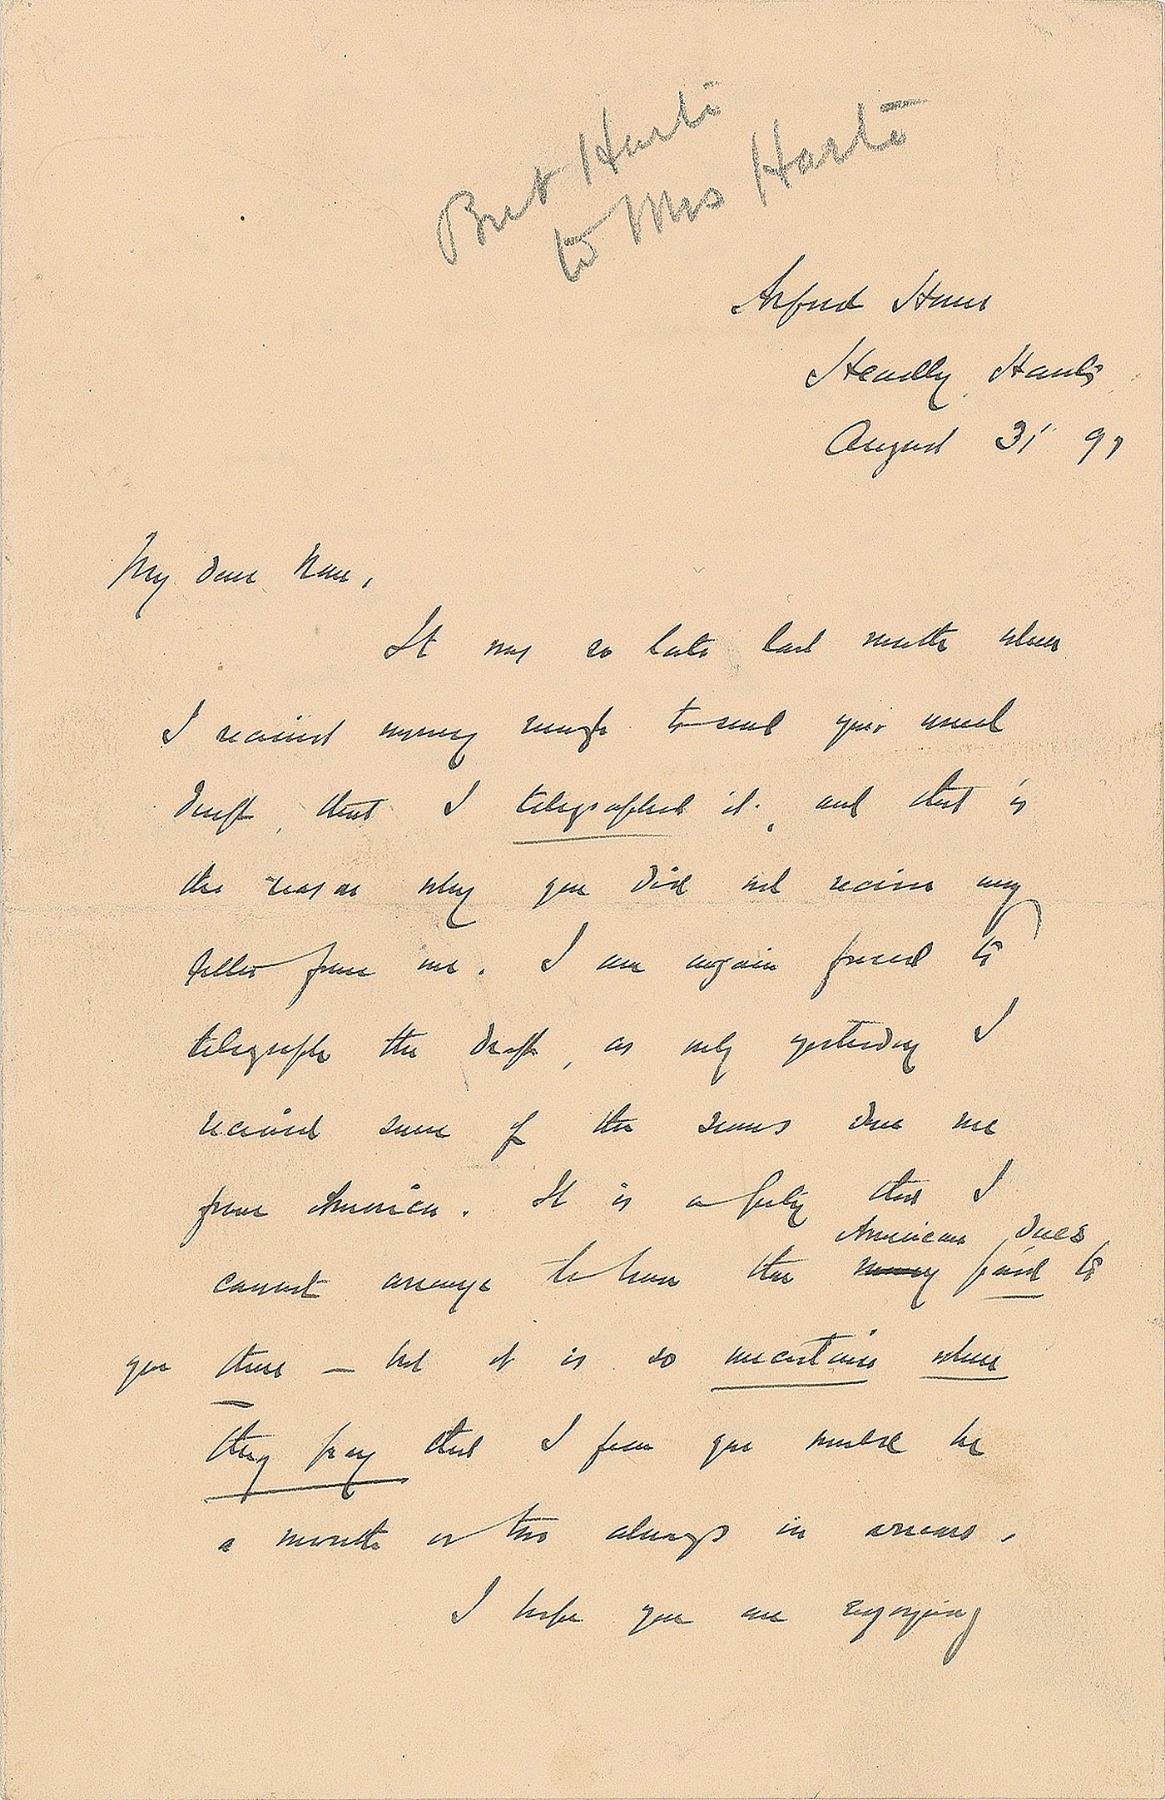 Bret Harte
to Mrs Harte
Arford House
Headley, Hants
August 31 97
My dear Nan,
It was so late last month when
I received money enough to send your usual
draft, that I telegraphed it; and that is
the reason why you did not receive any
letter from me. I am again forced to
telegraph the draft, as only yesterday I
received some of the sums due me
from America. It is a pity that I
American dues
cannot arrange to have the money paid to
you there – but it is so uncertain when
they pay that I fear you would be
a month or two always in arrears.
I hope you are enjoying